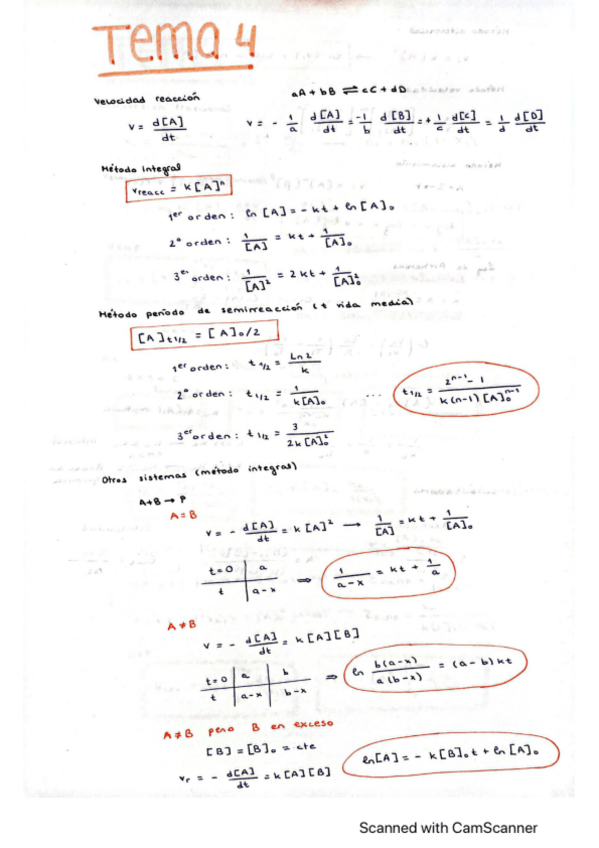 Tema 4
Velocidad reacción
aA + bB ⇌ cC + dD
v = d[A]/dt
v = - 1/a d[A]/dt = -1/b d[B]/dt = + 1/c d[C]/dt = 1/d d[D]/dt
Método integral
v reacc = k[A]ⁿ
1er orden: ln [A] = - kt + ln [A]₀
2º orden: 1/[A] = kt + 1/[A]₀
3er orden: 1/[A]² = 2kt + 1/[A]₀²
Método período de semirreacción (t vida media)
[A]t1/2 = [A]₀/2
1er orden: t 1/2 = Ln2/k
2º orden: t 1/2 = 1/k[A]₀ ... t1/2 = 2ⁿ⁻¹ - 1/k(n-1)[A]₀ⁿ⁻¹
3er orden: t 1/2 = 3/2k[A]₀²
Otros sistemas (método integral)
A+B → P
A = B
v = - d[A]/dt = k[A]² → 1/[A] = kt + 1/[A]₀
t=0 | a
t | a-x
⇒ 1/a-x = kt + 1/a
A ≠ B
v = - d[A]/dt = k[A][B]
t=0 | a | b
t | a-x | b-x
⇒ ln b(a-x)/a(b-x) = (a-b)kt
A ≠ B pero B en exceso
[B] = [B]₀ = cte
vr = - d[A]/dt = k[A][B]
ln[A] = - k[B]₀t + ln[A]₀
Scanned with CamScanner